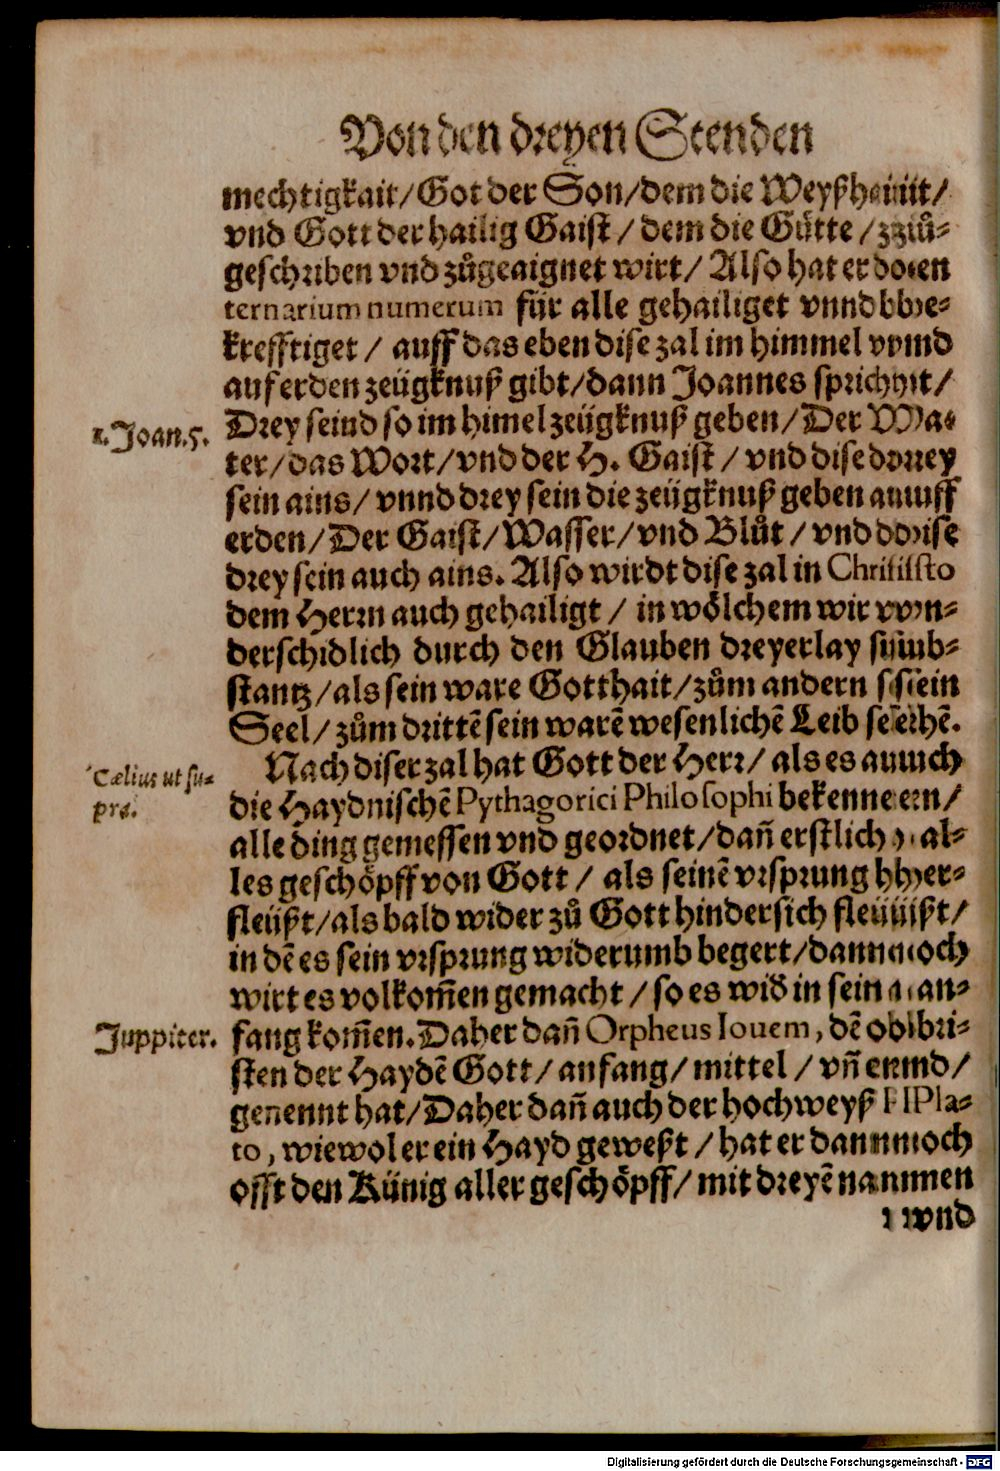 Von den dreyen Stenden
mechtigkait/Got der Son/dem die Weyßhait/
vnd Gott der hailig Gaist/dem die Gütte/zů-
geschriben vnd zůgeaignet wirt/Also hat er den
ternarium numerum für alle gehailiget vnnd be-
krefftiget/auff das eben dise zal im himmel vnd
auf erden zeügknuß gibt/dann Joannes spricht/
1.Joan.5.
Drey seind so im himel zeügknuß geben/Der Va-
ter/das Wort/vnd der H. Gaist/vnd dise drey
sein ains/vnnd drey sein die zeügknuß geben auff
erden/Der Gaist/Wasser/vnd Blůt/vnd dise
drey sein auch ains. Also wirdt dise zal in Christo
dem Herrn auch gehailigt/in wölchem wir vn-
derschidlich durch den Glauben dreyerlay sub-
stantz/als sein ware Gotthait/zům andern sein
Seel/zům drittē sein warē wesenlichē Leib sehē.
Nach diser zal hat Gott der Herr/als es auch
Cælius ut su-
pra.
die Haydnischē Pythagorici Philosophi bekennen/
alle ding gemessen vnd geordnet/dañ erstlich al-
les geschöpff von Gott/als seinē vrsprung her-
fleüßt/als bald wider zů Gott hindersich fleüßt/
in dē es sein vrsprung widerumb begert/dannoch
wirt es volkom̃en gemacht/so es wid in sein an-
Juppiter.
fang kom̃en. Daher dañ Orpheus Iouem, dē obri-
sten der Haydē Gott/anfang/mittel/vñ end/
genennt hat/Daher dañ auch der hochweyß Pla-
to, wiewol er ein Hayd geweßt/hat er dannoch
offt den Künig aller geschöpff/mit dreyē namen
vnd
Digitalisierung gefördert durch die Deutsche Forschungsgemeinschaft - DFG